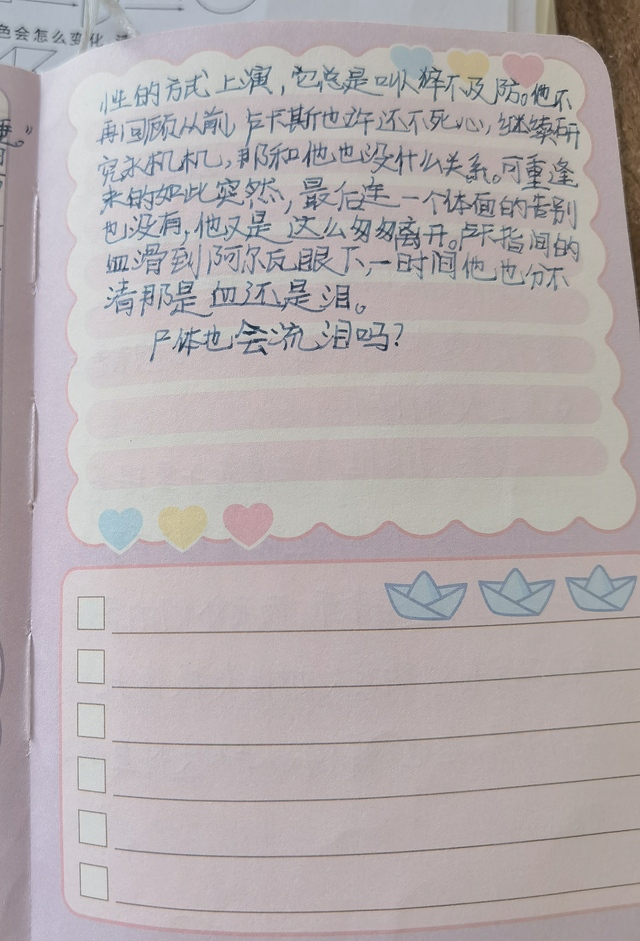 色会怎么变化
性的方式上演,它总是叫人猝不及防。他不
再回顾从前,卢卡斯也许还不死心,继续研
究永机机,那和他也没什么关系。可重逢
来的如此突然,最后连一个体面的告别
也没有,他又是这么匆匆离开。卢卡指间的
血滑到阿尔瓦眼下,一时间他也分不
清那是血还是泪。
尸体也会流泪吗?